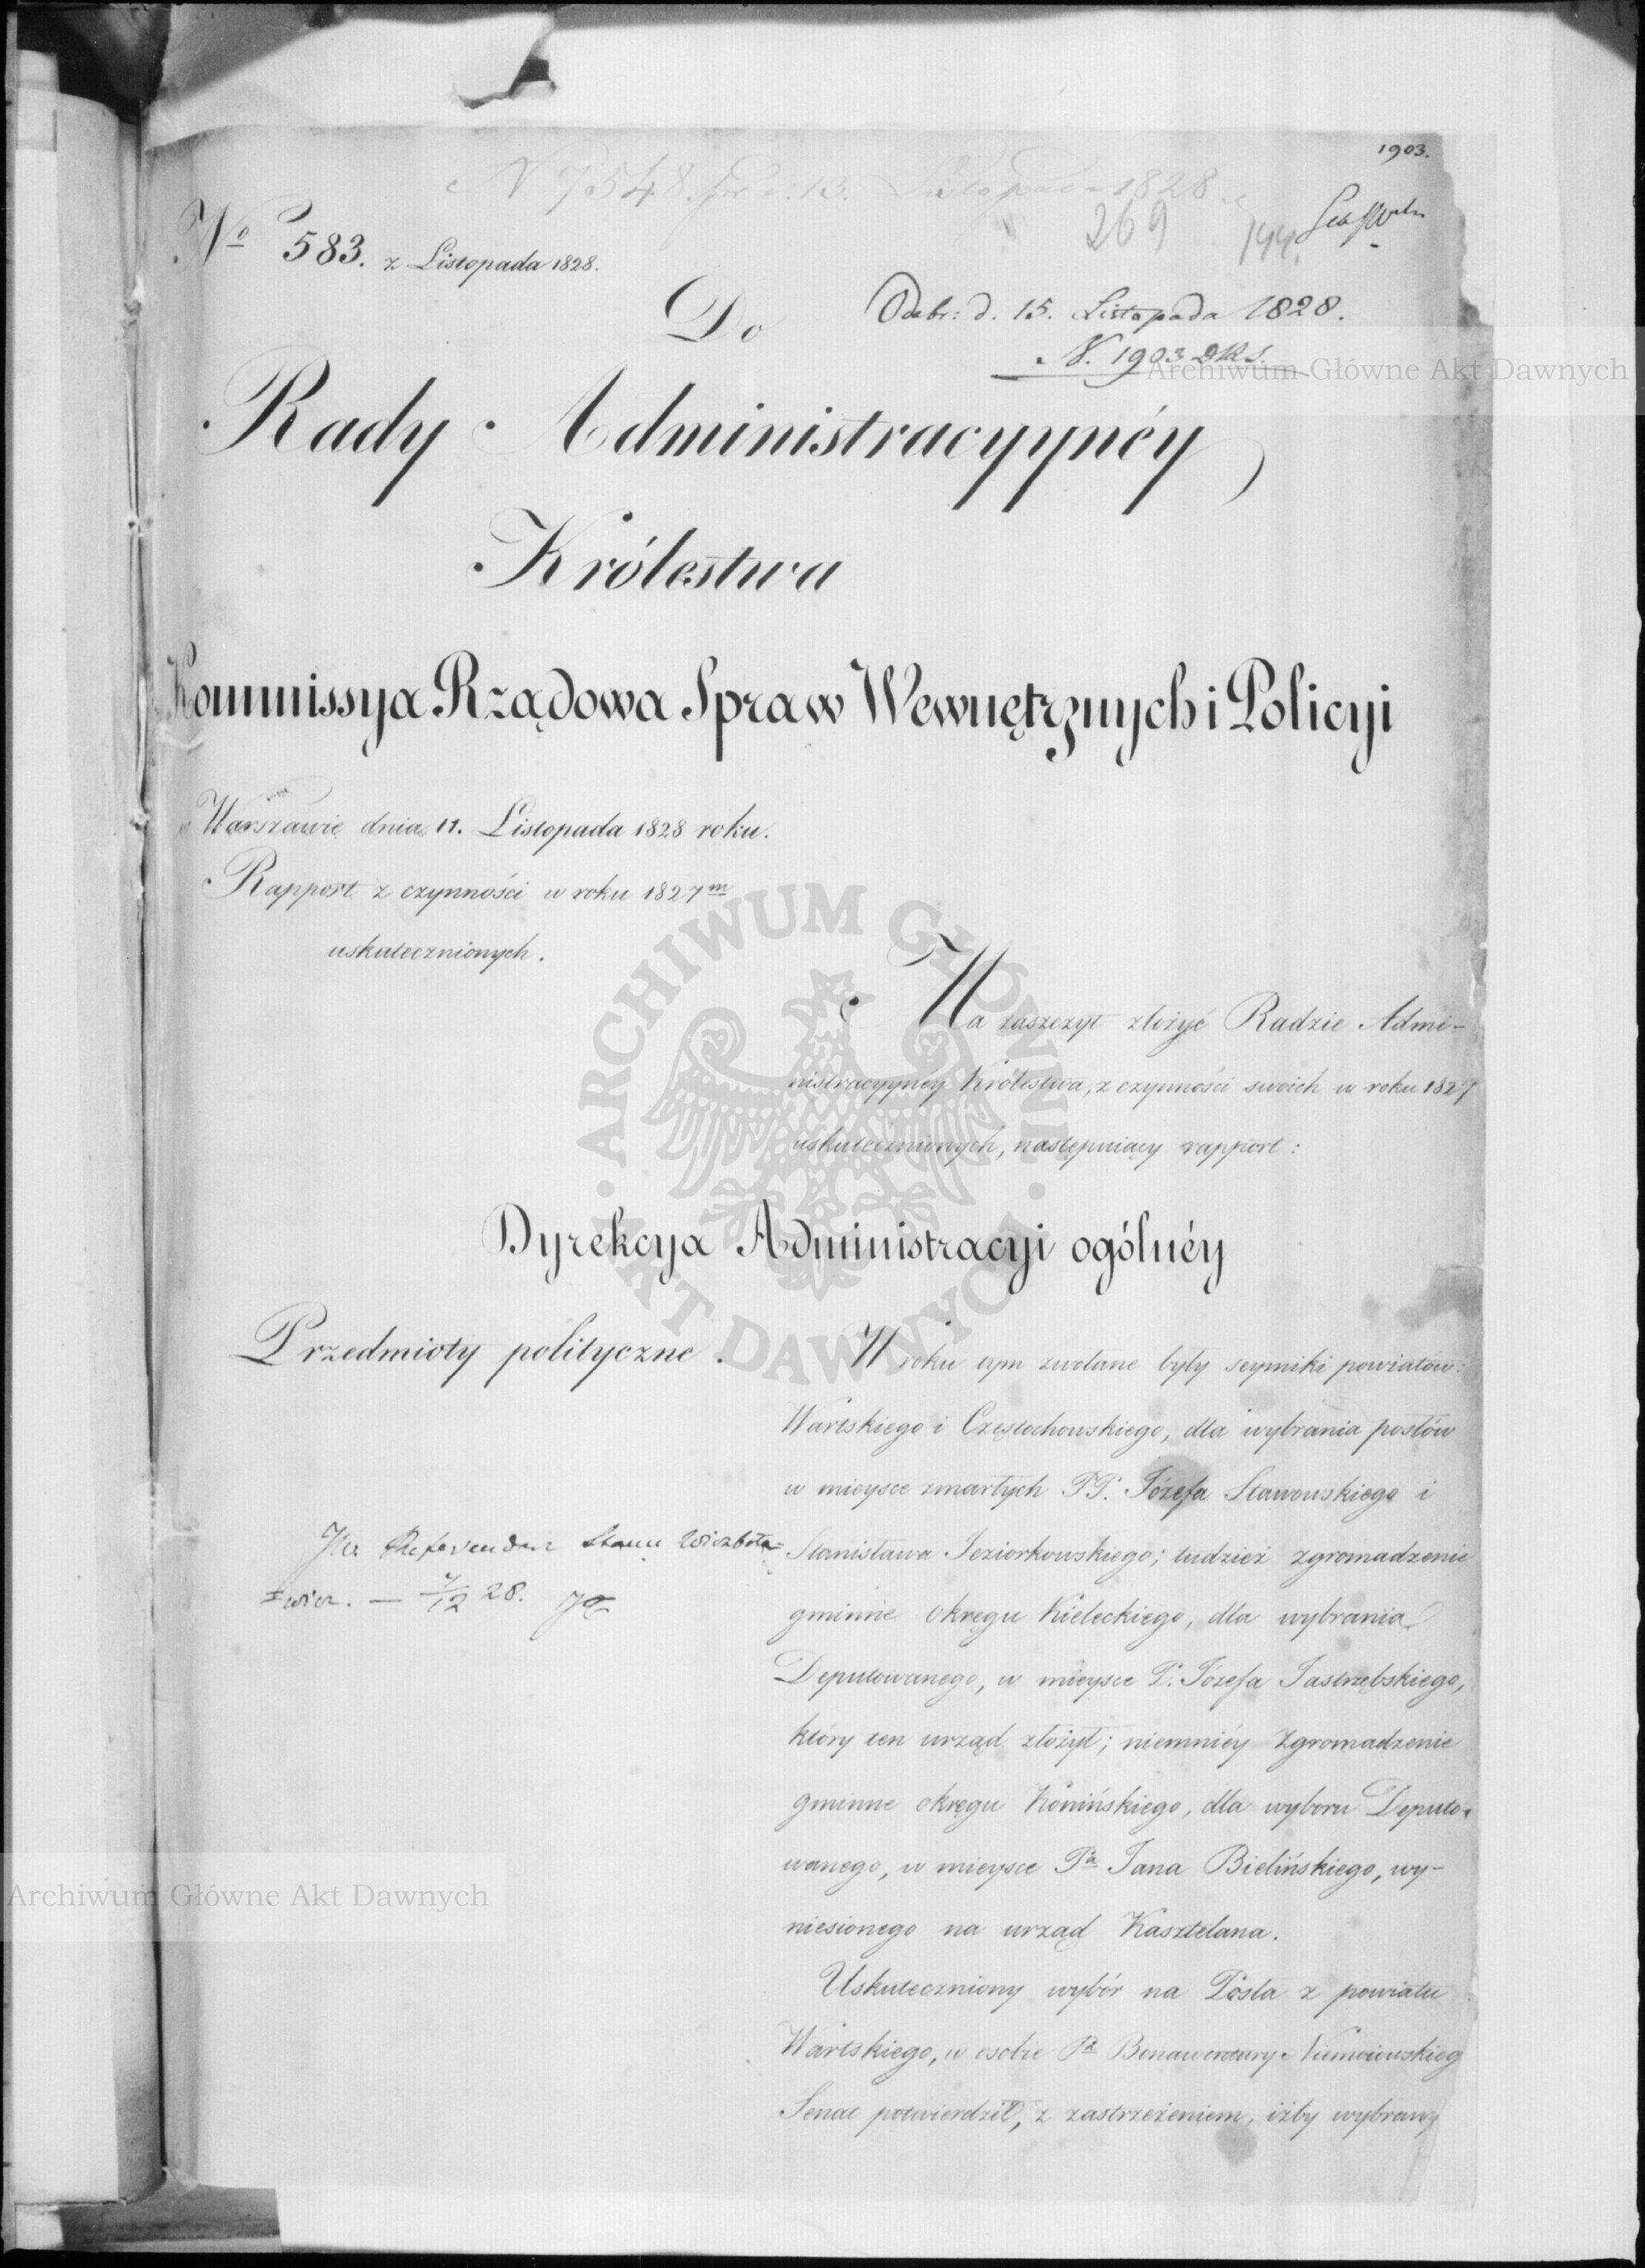 1903.
N 7548. pr d: 13. Listopada 1828
269
No 583. z Listopada 1828.
Do
Odebr: d. 15. Listopada 1828.
N. 1903 DKS.
Rady Administracyynéy
Królestwa
Kommissya Rządowa Spraw Wewnętrznych i Policyi
w Warszawie dnia 11. Listopada 1828 roku.
Rapport z czynności w roku 1827m
uskutecznionych.
Ma zaszczyt złożyć Radzie Admi-
nistracyynéy Królestwa, z czynności swoich w roku 1827
uskutecznionych, następuiący rapport:
Dyrekcya Administracyi ogólnéy
Przedmioty polityczne.
W roku tym zwołane były seymiki powiatów:
Wartskiego i Częstochowskiego, dla wybrania posłów
w mieysce zmarłych PP. Józefa Stawowskiego i
Stanisława Jeziorkowskiego; tudzież zgromadzenie
gminne okręgu Kieleckiego, dla wybrania
Deputowanego, w mieysce P. Józefa Jastrzębskiego,
który ten urząd złożył; niemniéy Zgromadzenie
gminne okręgu Konińskiego, dla wyboru Deputo-
wanego, w mieysce Pa Jana Bielińskiego, wy-
niesionego na urząd Kasztelana.
Uskuteczniony wybór na Posła z powiatu
Wartskiego, w osobie Pa Bonawentury Niemoiowskieg
Senat potwierdził, z zastrzeżeniem, iżby wybrany
JW. Referendarz Stanu Wierzboło-
wicz. — 7/12 28.
Archiwum Główne Akt Dawnych
ARCHIWUM GŁÓWNE AKT DAWNYCH
Archiwum Główne Akt Dawnych